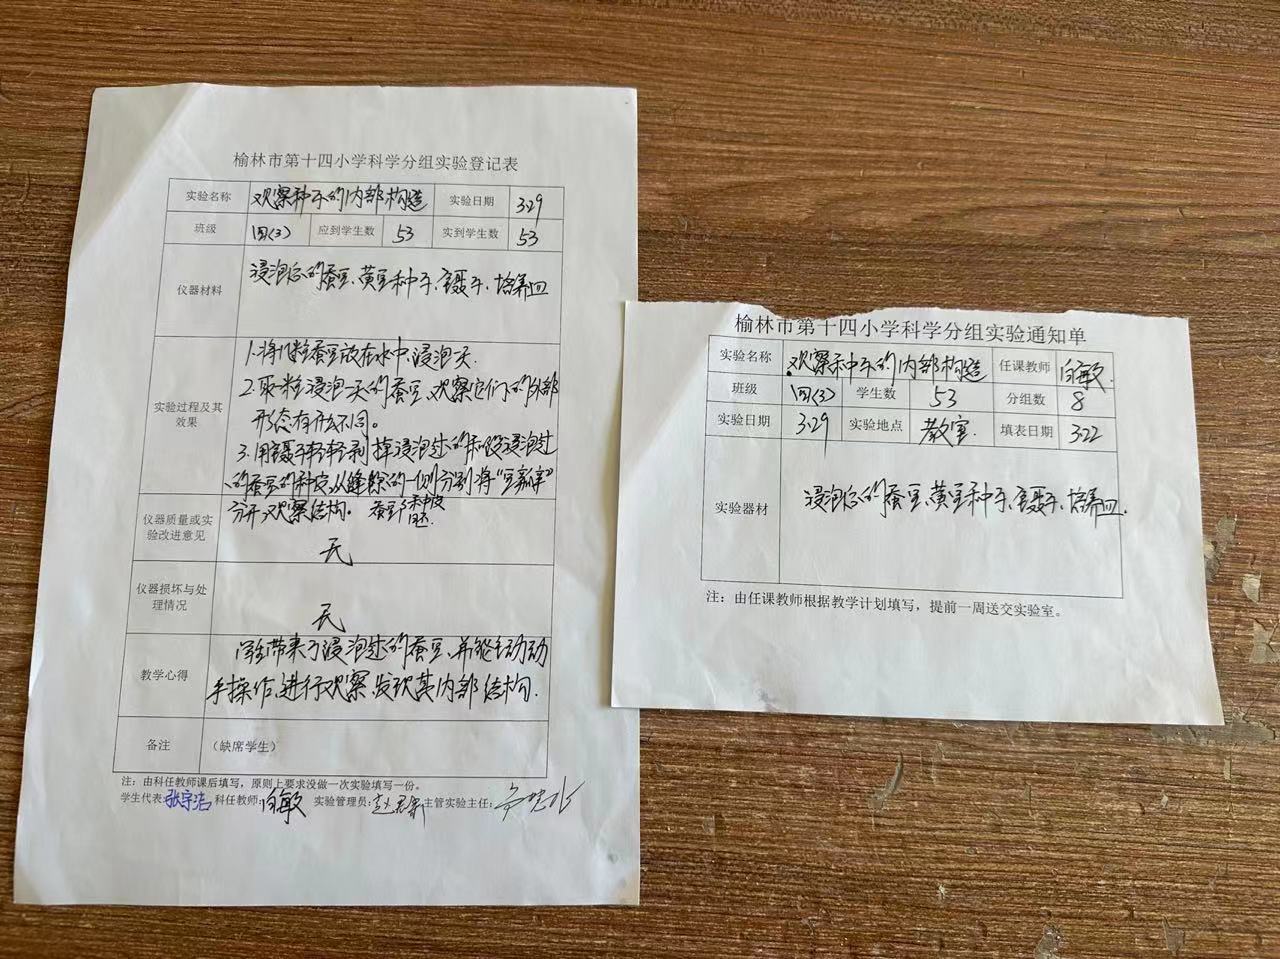 榆林市第十四小学科学分组实验登记表
实验名称 观察种子的内部构造 实验日期 3.29
班级 四(3) 应到学生数 53 实到学生数 53
仪器材料 浸泡后的蚕豆、黄豆种子、镊子、培养皿
实验过程及其效果
1.将几粒蚕豆放在水中,浸泡一天.
2.取一粒浸泡一天的蚕豆,观察它们的外部
形态有什么不同。
3.用镊子轻轻剥掉浸泡过的和没浸泡过
的蚕豆的种皮,从缝隙的一侧分别将“豆瓣”
分开,观察结构。 蚕豆 种皮
仪器质量或实验改进意见 无
仪器损坏与处理情况 无
教学心得
学生带来了浸泡过的蚕豆,并能主动动
手操作,进行观察,发现其内部结构.
备注 (缺席学生)
注:由科任教师课后填写,原则上要求没做一次实验填写一份。
学生代表:张宇洁 科任教师:白敏 实验管理员: 主管实验主任:
榆林市第十四小学科学分组实验通知单
实验名称 观察种子的内部构造 任课教师 白敏
班级 四(3) 学生数 53 分组数 8
实验日期 3.29 实验地点 教室 填表日期 3.22
实验器材 浸泡后的蚕豆、黄豆种子、镊子、培养皿.
注:由任课教师根据教学计划填写,提前一周送交实验室。